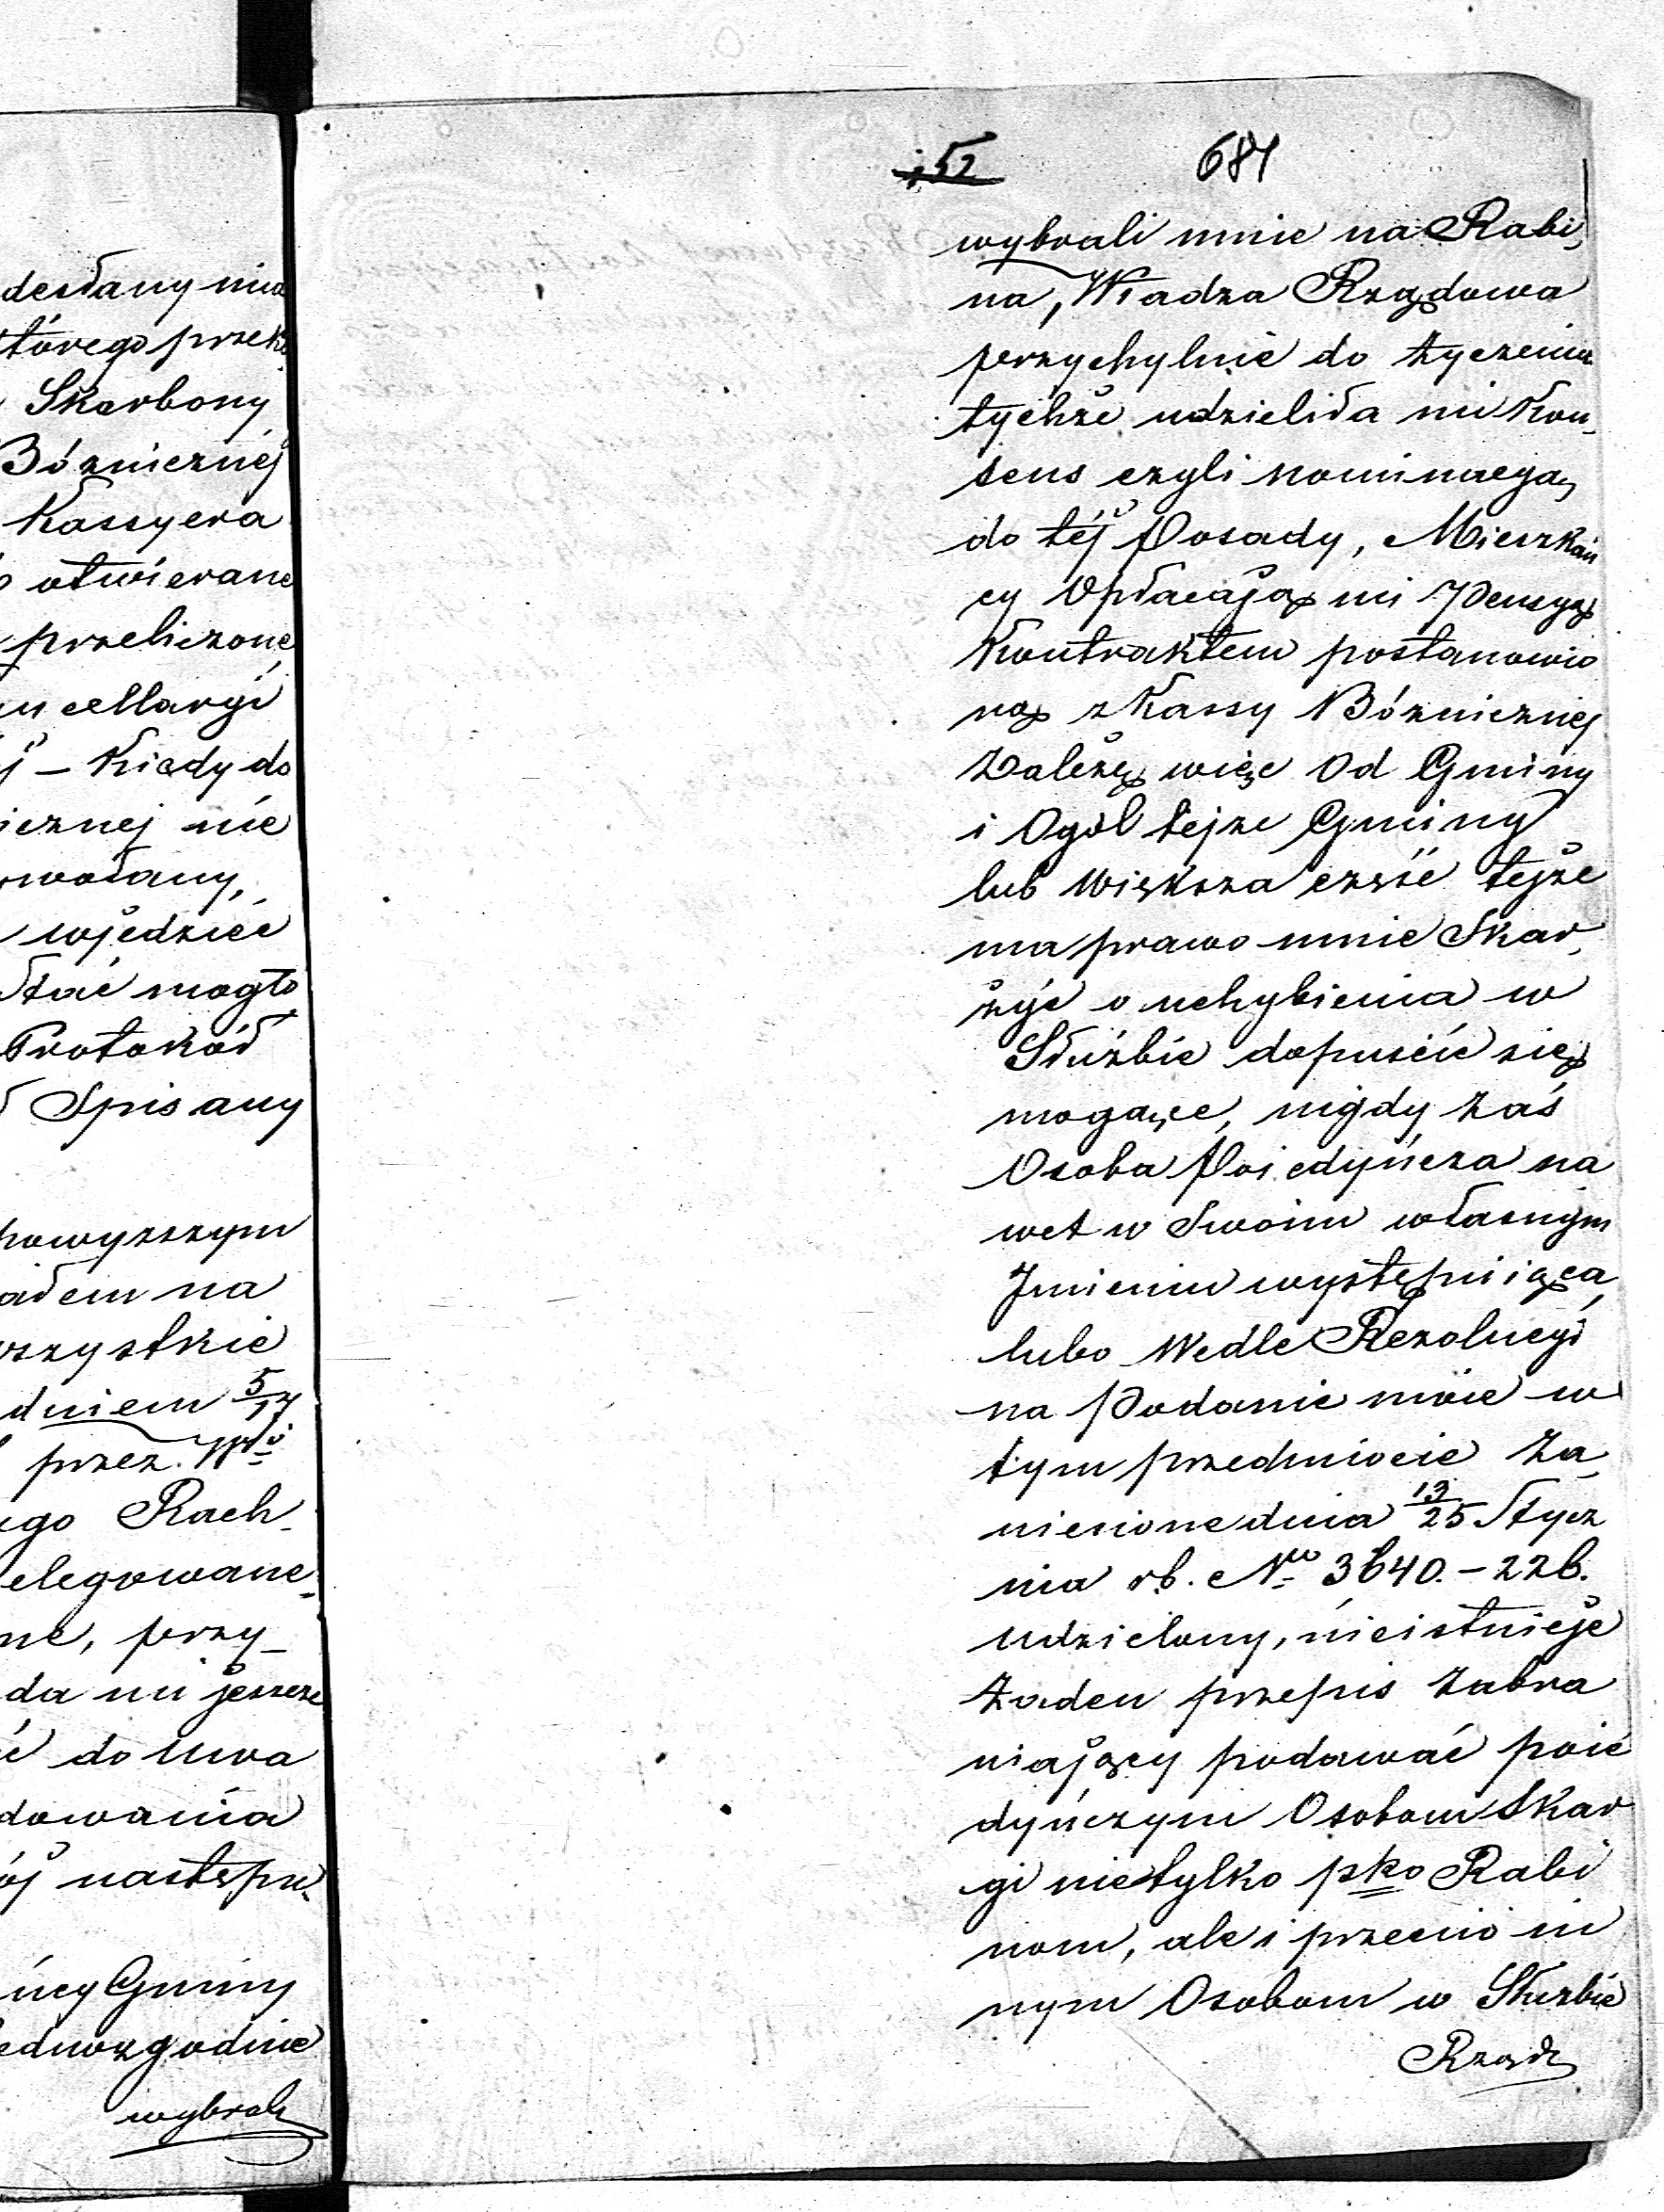 desłany nia
tórego przeko
Skarbony
Bóżnicznéj
Kassyera
otwierane
przeliczone
ncellaryi
j – Kiedy do
icznej nie
wołany,
wjedzieć
stać mogło
Protokół
Spisany
nowyższym
adem na
wszystkie
dniem 5/17
przez. Wgo
ego Rach-
elegowane-
ne, przy-
da mi jeszcze
ć do Uwa
dowania
ój nastepu-
ńcy Gminy
ednozgodnie
wybrali
52 684
wybrali mnie na Rabi-
na, Władza Rządowa
przychylnie do życzenia
tychże udzieliła mi Kon-
sens czyli nominacyą
do téj Posady, Mieszkań
cy Opłacają mi Pensyą
Kontraktem postanowio
ną z Kassy Bóżnicznej
Zależę więc Od Gminy
i Ogół tejże Gminy
lub Większa część tejże
ma prawo mnie Skar-
żyć o uchybienia w
Służbie dopuście się
mogące, nigdy zaś
Osoba Poiedyńcza na
wet w Swoim własnym
Jmieniu wystepuiąca,
lubo Wedle Rezolucyi
na Podanie moie w
tym przedmiocie Za-
nienione dnia 13/25 Stycz
nia rb. No 3640.–226.
Udzielony, nieistnieje
Żaden przepis Zabra
niający podawać poie
dyńczym Osobom Skar
gi nietylko pko Rabi
nom, ale i przeciw in
nym Osobom w Służbie
Rządo